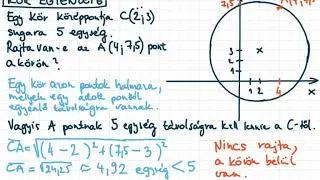 KÖR EGYENLETE
Egy kör középpontja C(2;3)
sugara 5 egység.
Rajta van-e az A(4;7,5) pont
a körön?
Egy kör azon pontok halmaza,
melyek egy adott ponttól
egyenlő távolságra vannak.
Vagyis A pontnak 5 egység távolságra kell lennie C-től.
CA=√(4-2)²+(7,5-3)²
CA=√24,25 ≈ 4,92 egység < 5
Nincs rajta,
a körön belül
van.
7,5
3
2
1
1 2 4